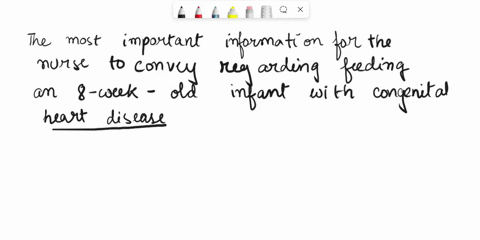 The most important information for the
nurse to convey regarding feeding
an 8-week-old infant with congenital
heart disease